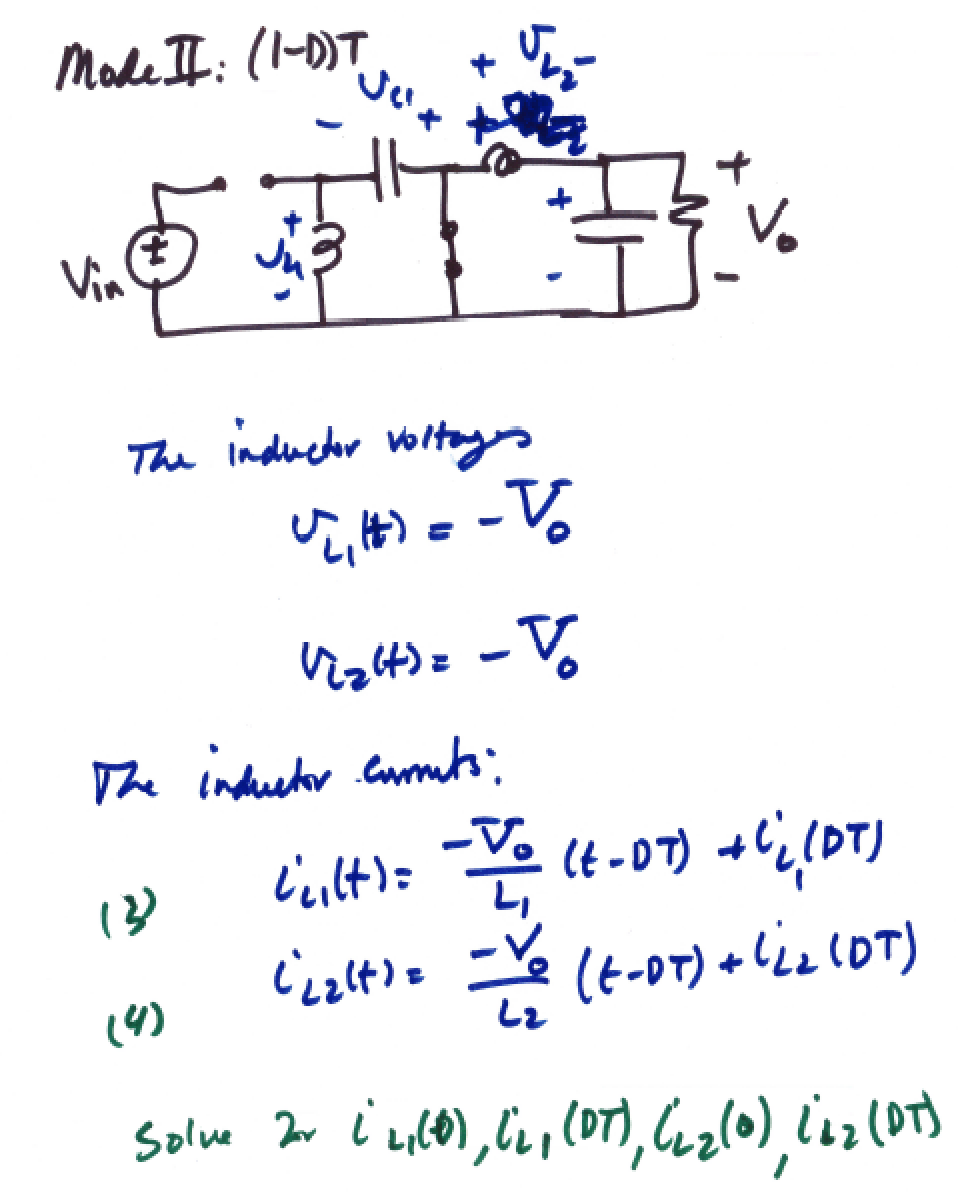 Mode II: (1-D)T
+ v_L2 -
- v_c1 +
+
+ v_L1 -
+ -
+ V_o -
V_in
The inductor voltages
v_L1(t) = -V_o
v_L2(t) = -V_o
The inductor currents:
(3) i_L1(t) = -V_o/L_1 (t-DT) + i_L1(DT)
(4) i_L2(t) = -V_o/L_2 (t-DT) + i_L2(DT)
Solve i_L1(0), i_L1(DT), i_L2(0), i_L2(DT)